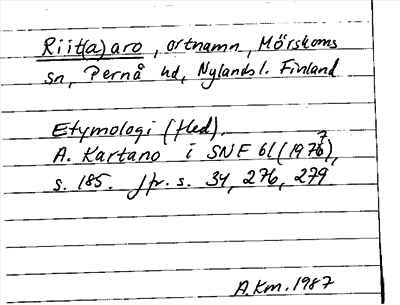 Riit(a)aro, ortnamn, Mörskoms
sn, Pernå hd, Nylands l. Finland
Etymologi (fled).
A. Kartano i SNF 61 (1977),
s. 185. Jfr. s. 34, 276, 279
A.Km. 1987